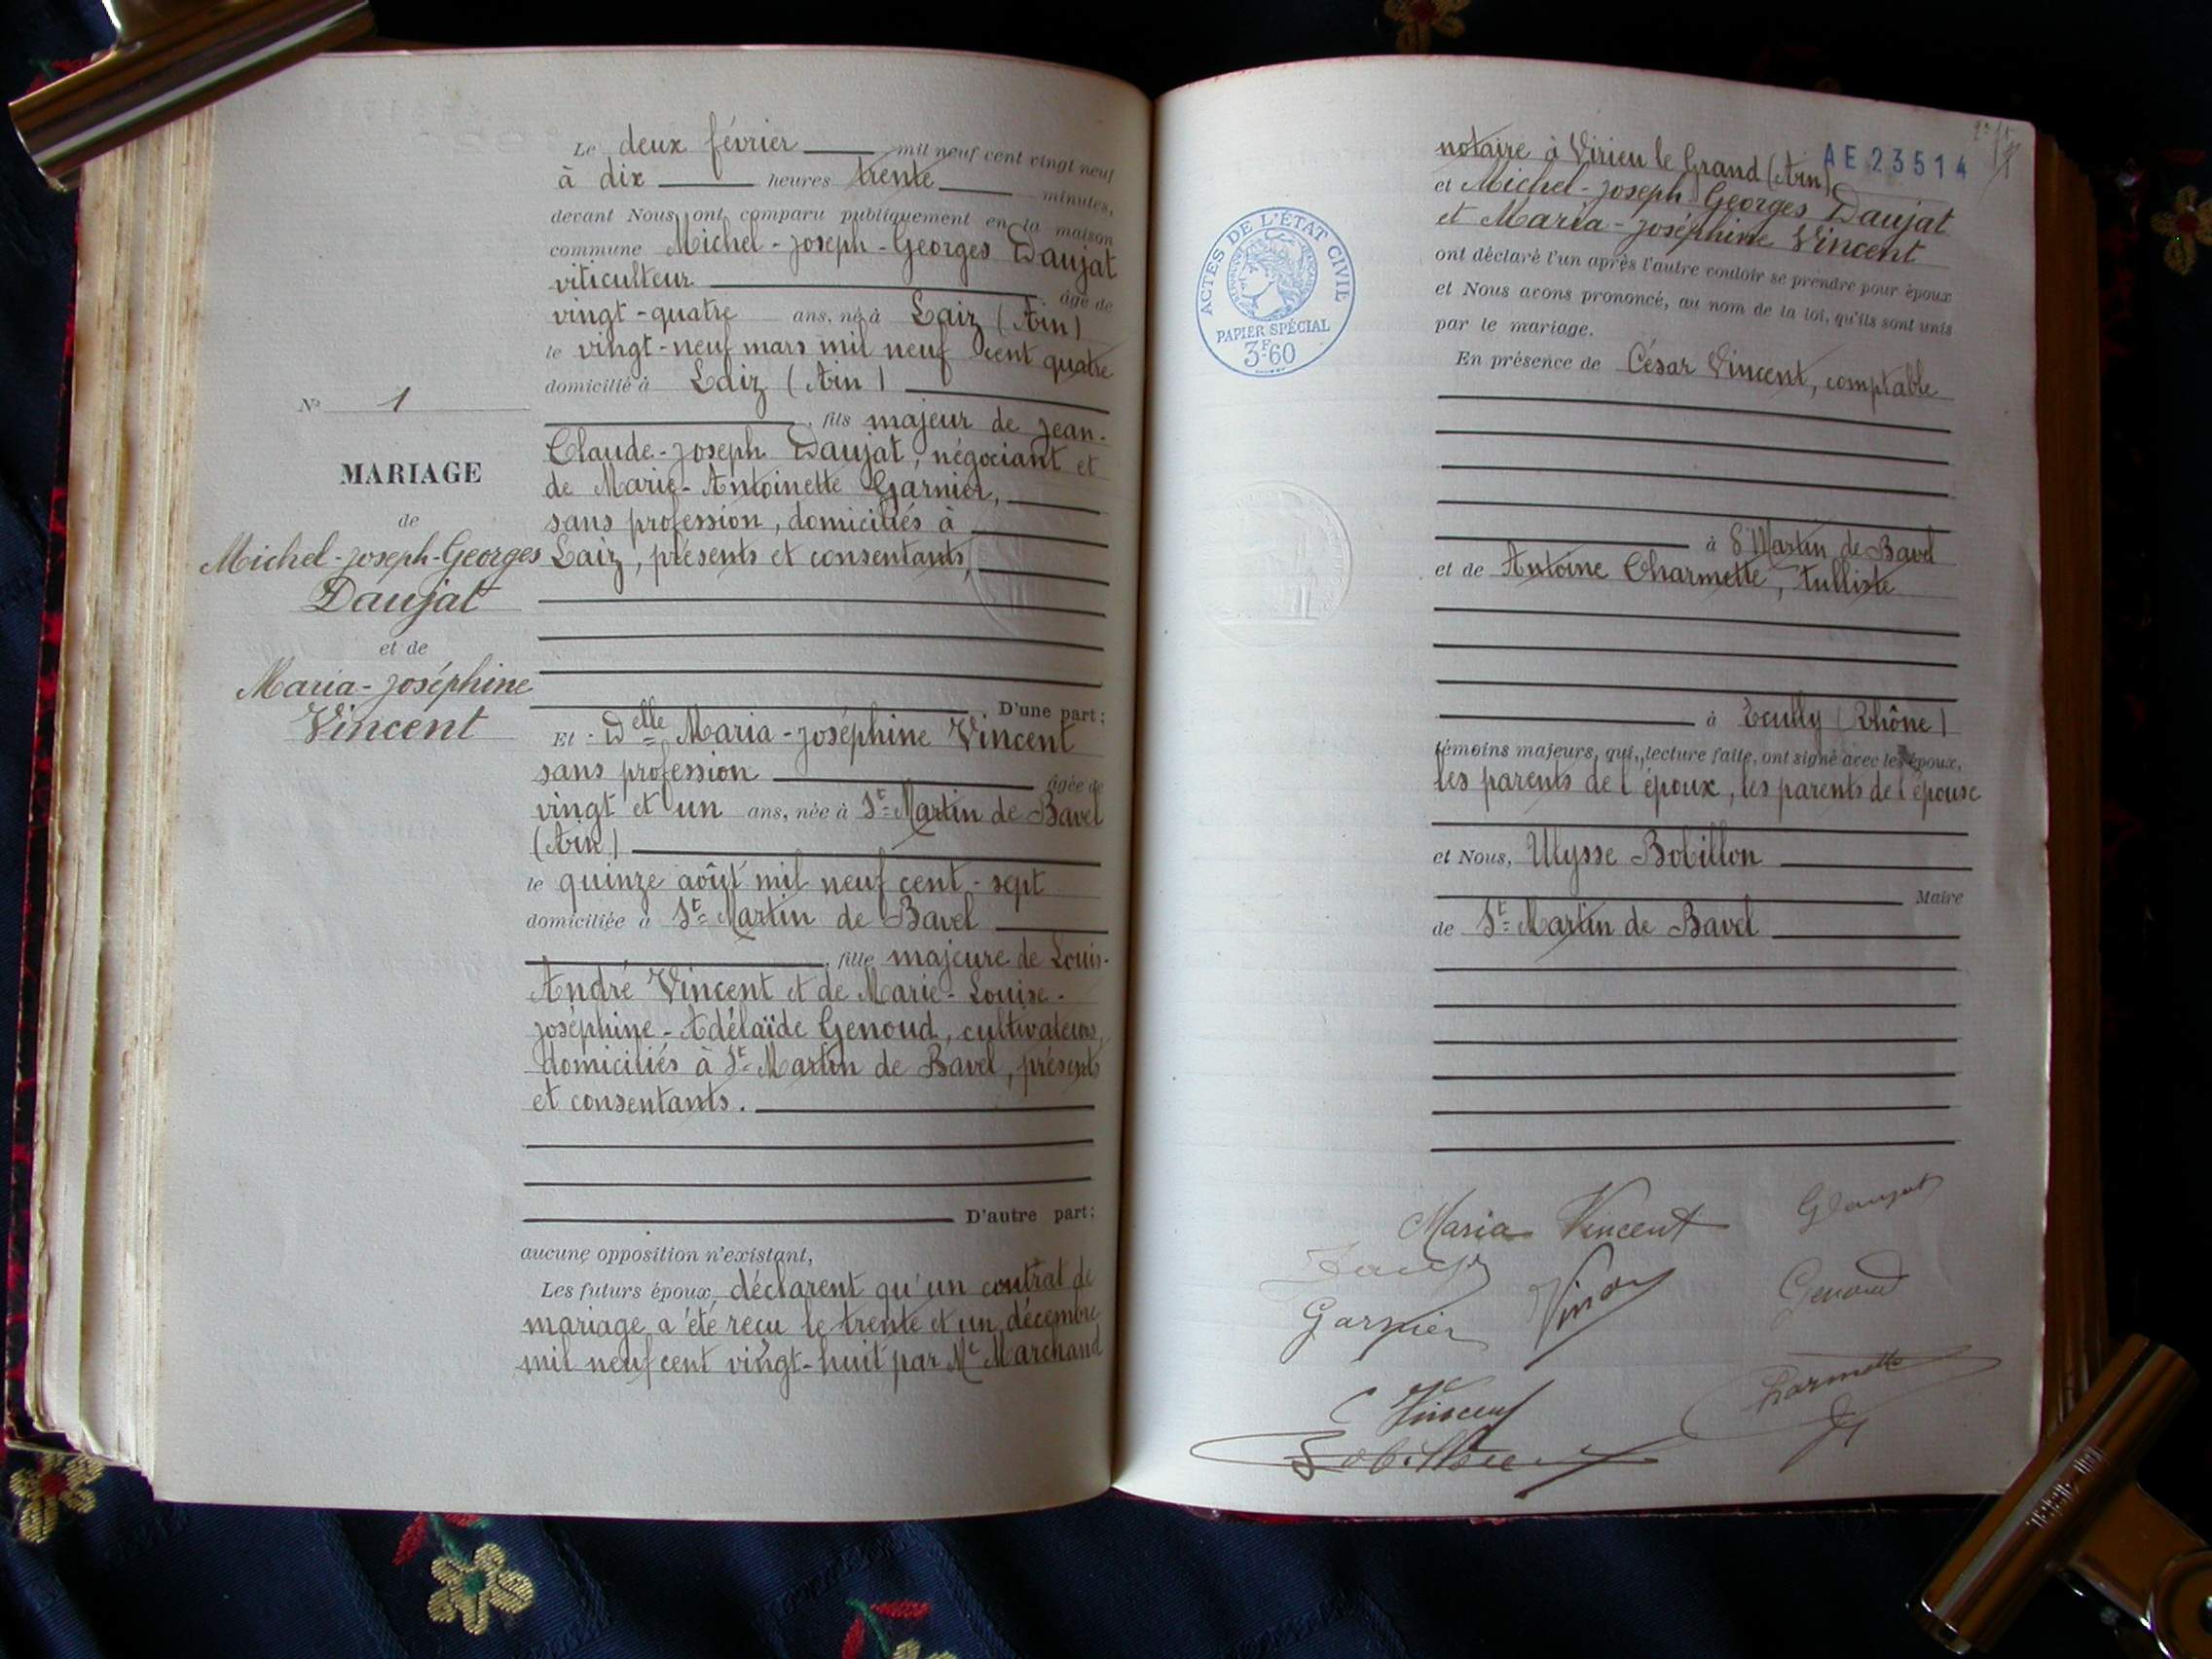 Le deux février mil neuf cent vingt neuf
à dix heures trente minutes,
devant Nous ont comparu publiquement en la maison
commune Michel-Joseph-Georges Daujat
viticulteur âgé de
vingt-quatre ans, né à Laiz (Ain)
le vingt-neuf mars mil neuf cent quatre
domicilié à Laiz (Ain)
, fils majeur de Jean-
Claude-Joseph Daujat, négociant et
de Marie-Antoinette Garnier,
sans profession, domiciliés à
Laiz, présents et consentants,
N° 1
MARIAGE
de
Michel-Joseph-Georges
Daujat
et de
Maria-Joséphine
Vincent
D'une part;
Et Delle Maria-Joséphine Vincent
sans profession âgée de
vingt et un ans, née à St Martin de Bavel
(Ain)
le quinze août mil neuf cent-sept
domiciliée à St Martin de Bavel
, fille majeure de Louis-
André Vincent et de Marie-Louise-
Joséphine-Adélaïde Genoud, cultivateurs,
domiciliés à St Martin de Bavel, présents
et consentants.
D'autre part;
aucune opposition n'existant,
Les futurs époux, déclarent qu'un contrat de
mariage a été reçu le trente et un décembre
mil neuf cent vingt-huit par Me Marchand
notaire à Virieu le Grand (Ain)
AE 23514
et Michel-Joseph Georges Daujat
et Maria-Joséphine Vincent
ont déclaré l'un après l'autre vouloir se prendre pour époux
et Nous avons prononcé, au nom de la loi, qu'ils sont unis
par le mariage.
ACTES DE L'ÉTAT CIVIL
RÉPUBLIQUE FRANÇAISE
PAPIER SPÉCIAL
3F60
En présence de César Vincent, comptable
à St Martin de Bavel
et de Antoine Charmette, tulliste
à Ecully (Rhône)
témoins majeurs, qui, lecture faite, ont signé avec les époux,
les parents de l'époux, les parents de l'épouse
et Nous, Ulysse Bobillon
Maire
de St Martin de Bavel
Maria Vincent
G Daujat
Garnier
Genoud
C Vincent
Charmette
Bobillon